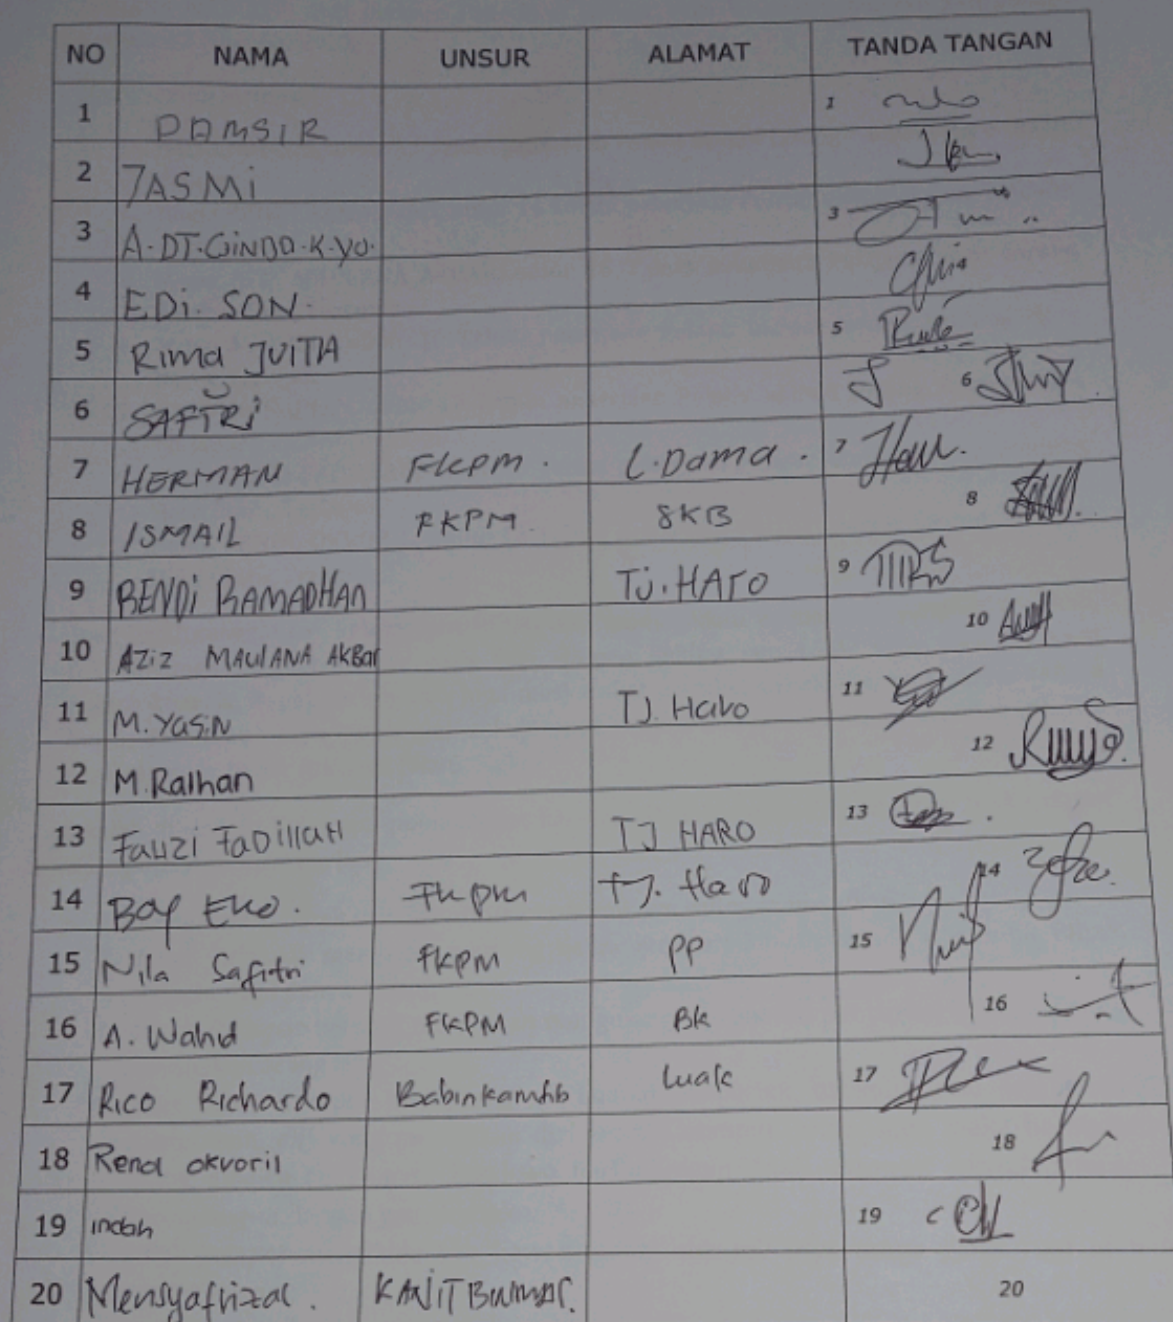 NO NAMA UNSUR ALAMAT TANDA TANGAN
1 DAMSIR 1
2 JASMi
3 A.DT.GiNDO.K.YO. 3
4 EDi. SON.
5 Rima JUITA 5
6 SAFTRi 6
7 HERMAN FKPM. L.Dama. 7
8 ISMAIL FKPM. SKB 8
9 RENDi RAMADHAN TJ.HARO 9
10 Aziz MAULANA AKBar 10
11 M.Yasin TJ. Haro 11
12 M.Raihan 12
13 Fauzi Fadillah TJ HARO 13
14 Eko. Fkpm TJ. Haro 14
15 Nila Safitri FKPM PP 15
16 A. Wahid FKPM BK 16
17 Rico Richardo Babinkamtib Luak 17
18 18
19 indah 19
20 Mensyafrizal. 20